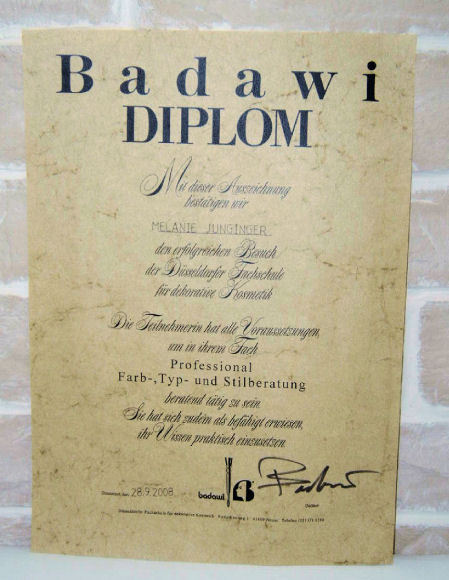 Badawi
DIPLOM
Mit dieser Auszeichnung
bestätigen wir
MELANIE JUNGINGER
den erfolgreichen Besuch
der Düsseldorfer Fachschule
für dekorative Kosmetik
Die Teilnehmerin hat alle Voraussetzungen,
um in ihrem Fach
Professional
Farb-,Typ- und Stilberatung
beratend tätig zu sein.
Sie hat sich zudem als befähigt erwiesen,
ihr Wissen praktisch einzusetzen.
28.9.2008
badawi
Düsseldorfer Fachschule für dekorative Kosmetik